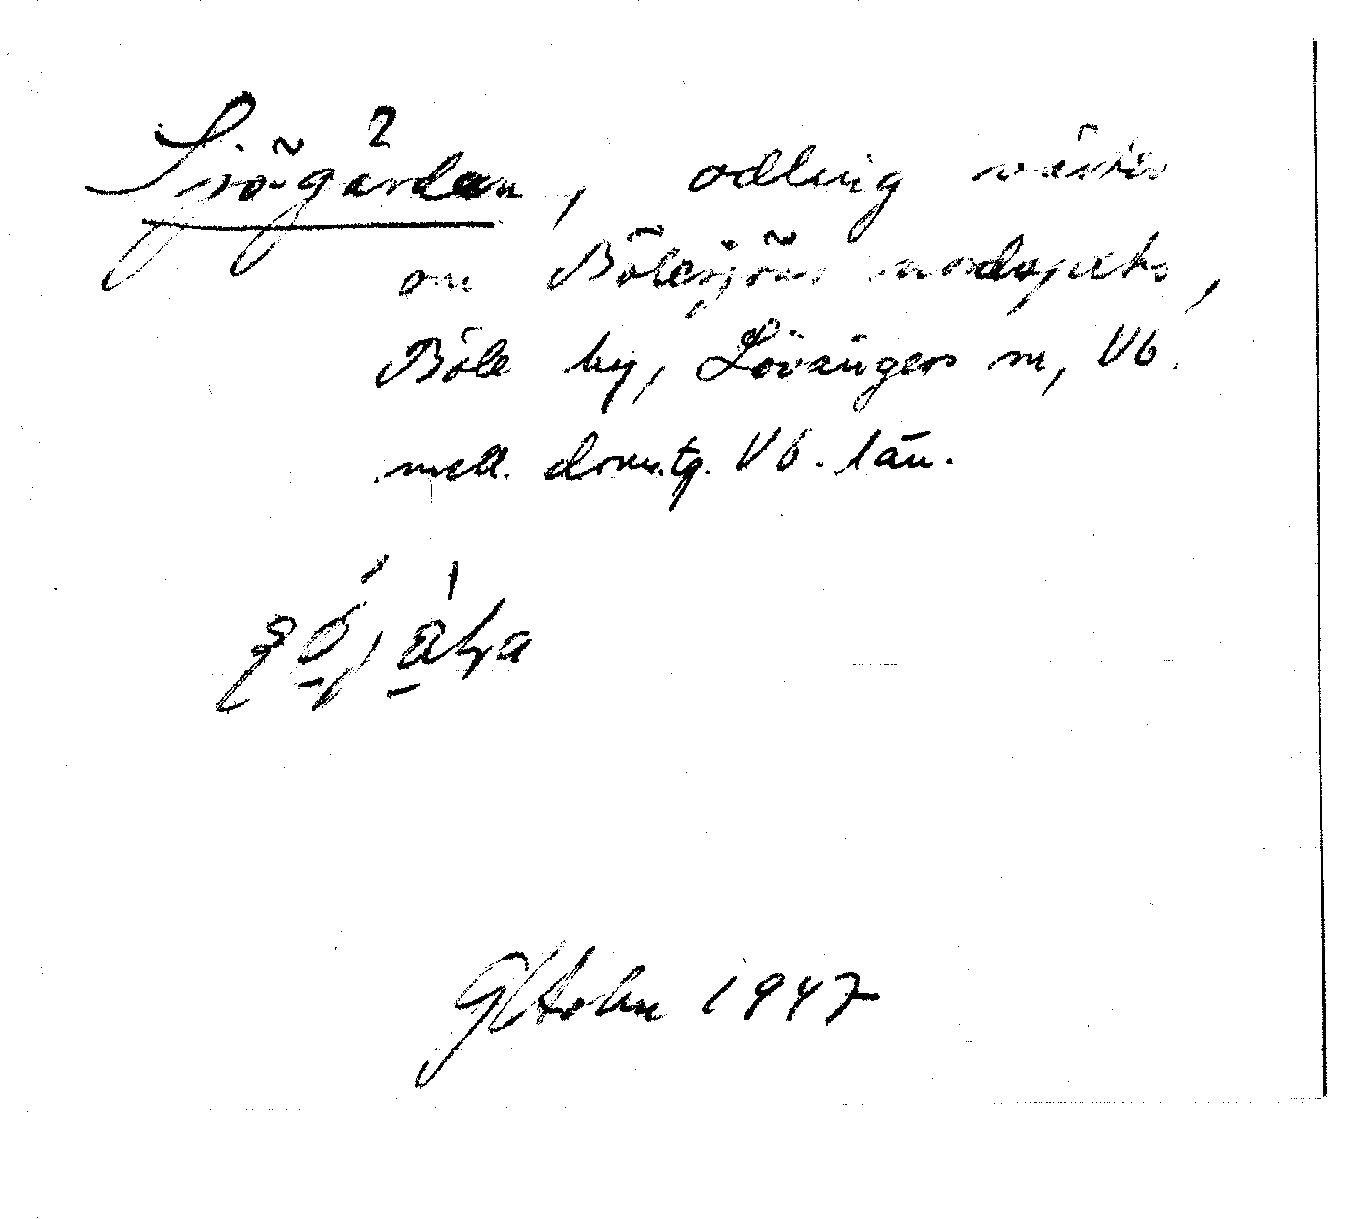 Sjögärdan, odling väster
om Bölesjöns nordspets,
Böle by, Lövångers sn, Vb.
mell. doms.tg. Vb. län.
GHoln 1947